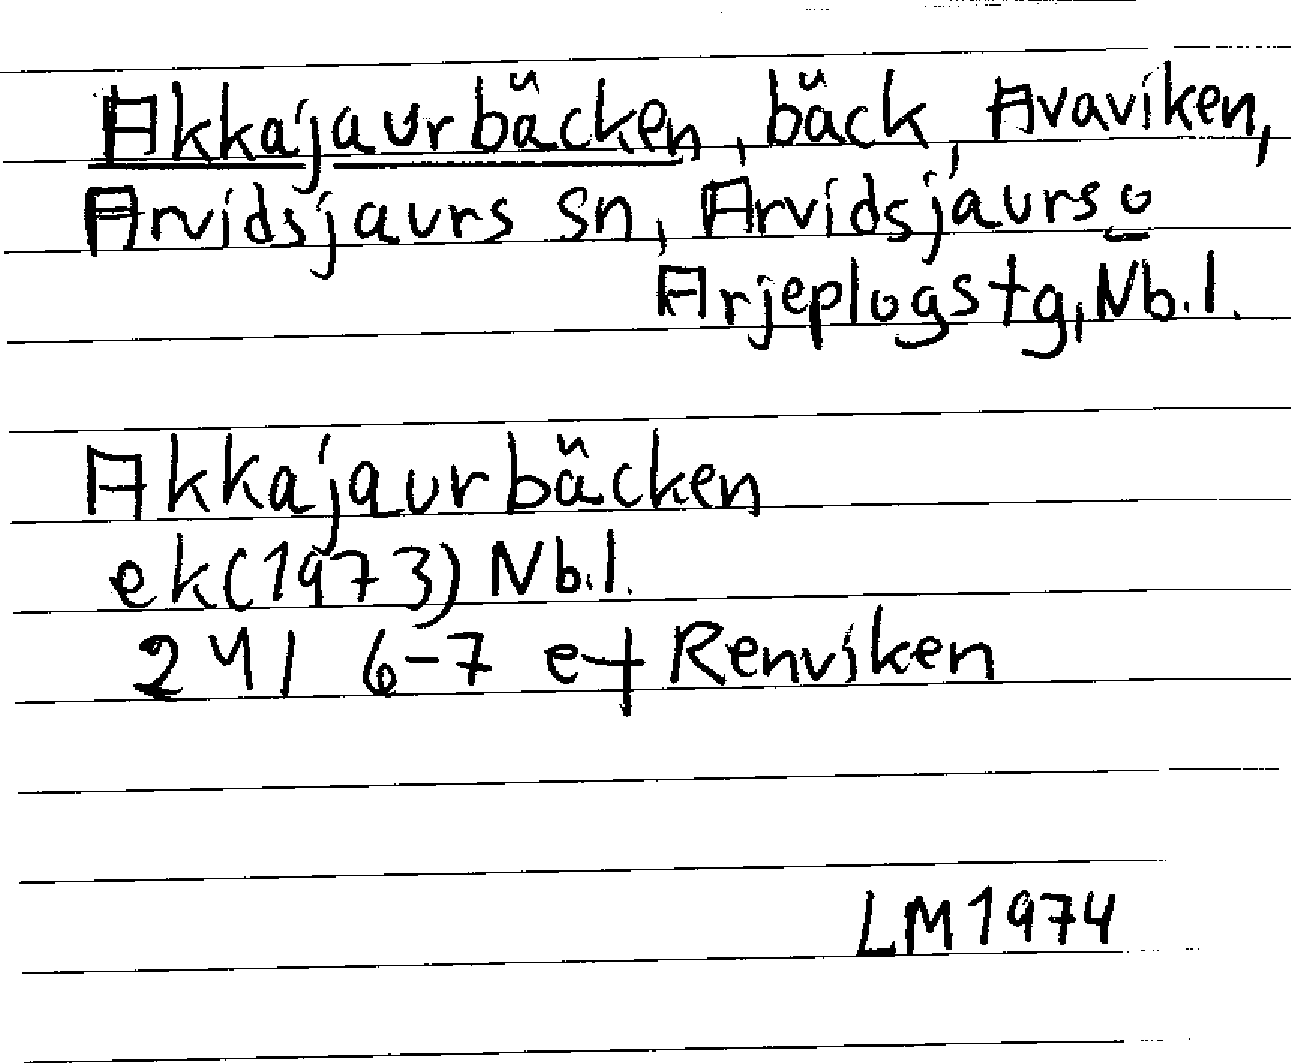 Akkajaurbäcken, bäck, Avaviken,
Arvidsjaurs sn, Arvidsjaurs o
Arjeplogs tg, Nb.l.
Akkajaurbäcken
ek(1973) Nb.l.
24I 6-7 ef Renviken
LM 1974